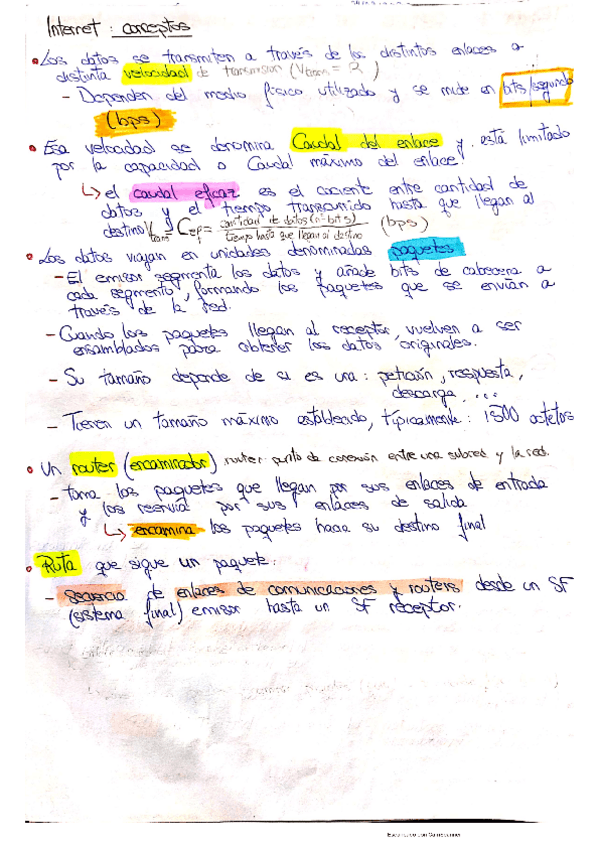 Internet : conceptos
• Los datos se transmiten a través de los distintos enlaces a
distinta velocidad de transmisión (Vtrans = R )
- Dependen del medio físico utilizado y se mide en bits/segundo
(bps)
• Esa velocidad se denomina Caudal del enlace y está limitado
por la capacidad o Caudal máximo del enlace
↳ el caudal eficaz es el cociente entre cantidad de
datos y el tiempo transcurrido hasta que llegan al
destino Vtrans = Cef = cantidad de datos (nº bits) / tiempo hasta que llegan al destino (bps)
• Los datos viajan en unidades denominadas paquetes
- El emisor segmenta los datos y añade bits de cabecera a
cada segmento, formando los paquetes que se envían a
través de la red.
- Cuando los paquetes llegan al receptor, vuelven a ser
ensamblados para obtener los datos originales.
- Su tamaño depende de si es una: petición, respuesta,
descarga, ...
- Tienen un tamaño máximo establecido, típicamente: 1500 octetos
• Un router (encaminador) router punto de conexión entre una subred y la red.
- toma los paquetes que llegan por sus enlaces de entrada
y los reenvía por sus enlaces de salida
↳ encamina los paquetes hacia su destino final
• Ruta que sigue un paquete:
- Secuencia de enlaces de comunicaciones y routers desde un SF
(sistema final) emisor hasta un SF receptor.
Escaneado con CamScanner